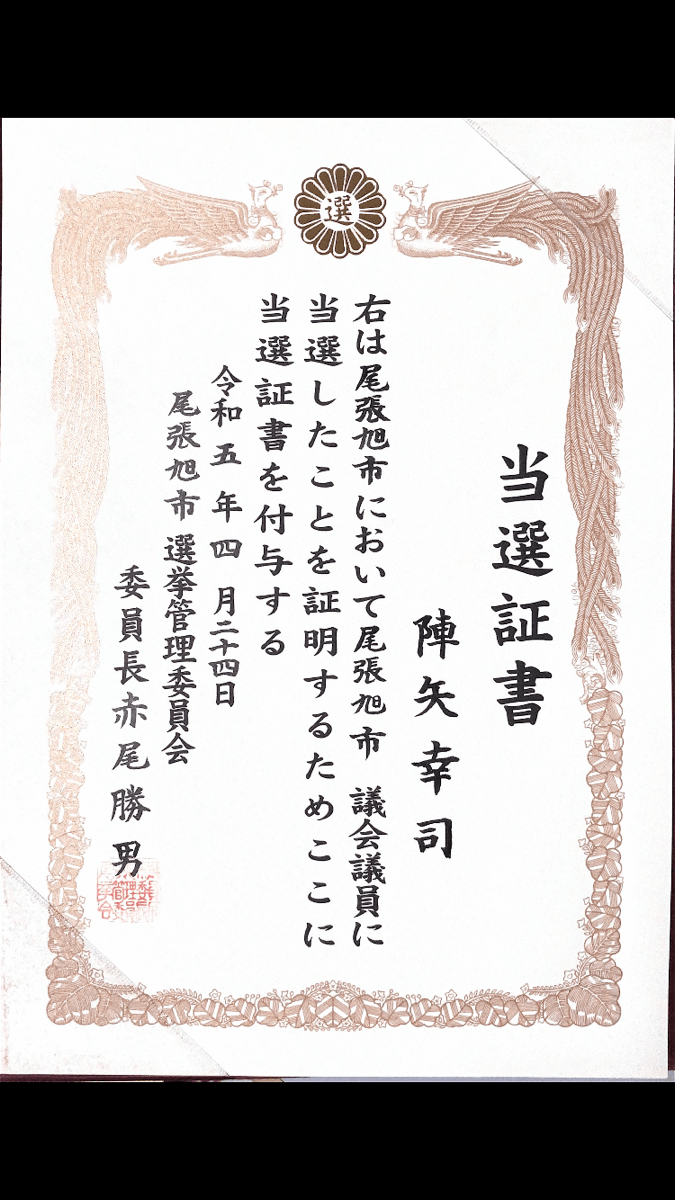 選
当選証書
陣矢幸司
右は尾張旭市において尾張旭市議会議員に
当選したことを証明するためここに
当選証書を付与する
令和五年四月二十四日
尾張旭市選挙管理委員会
委員長赤尾勝男